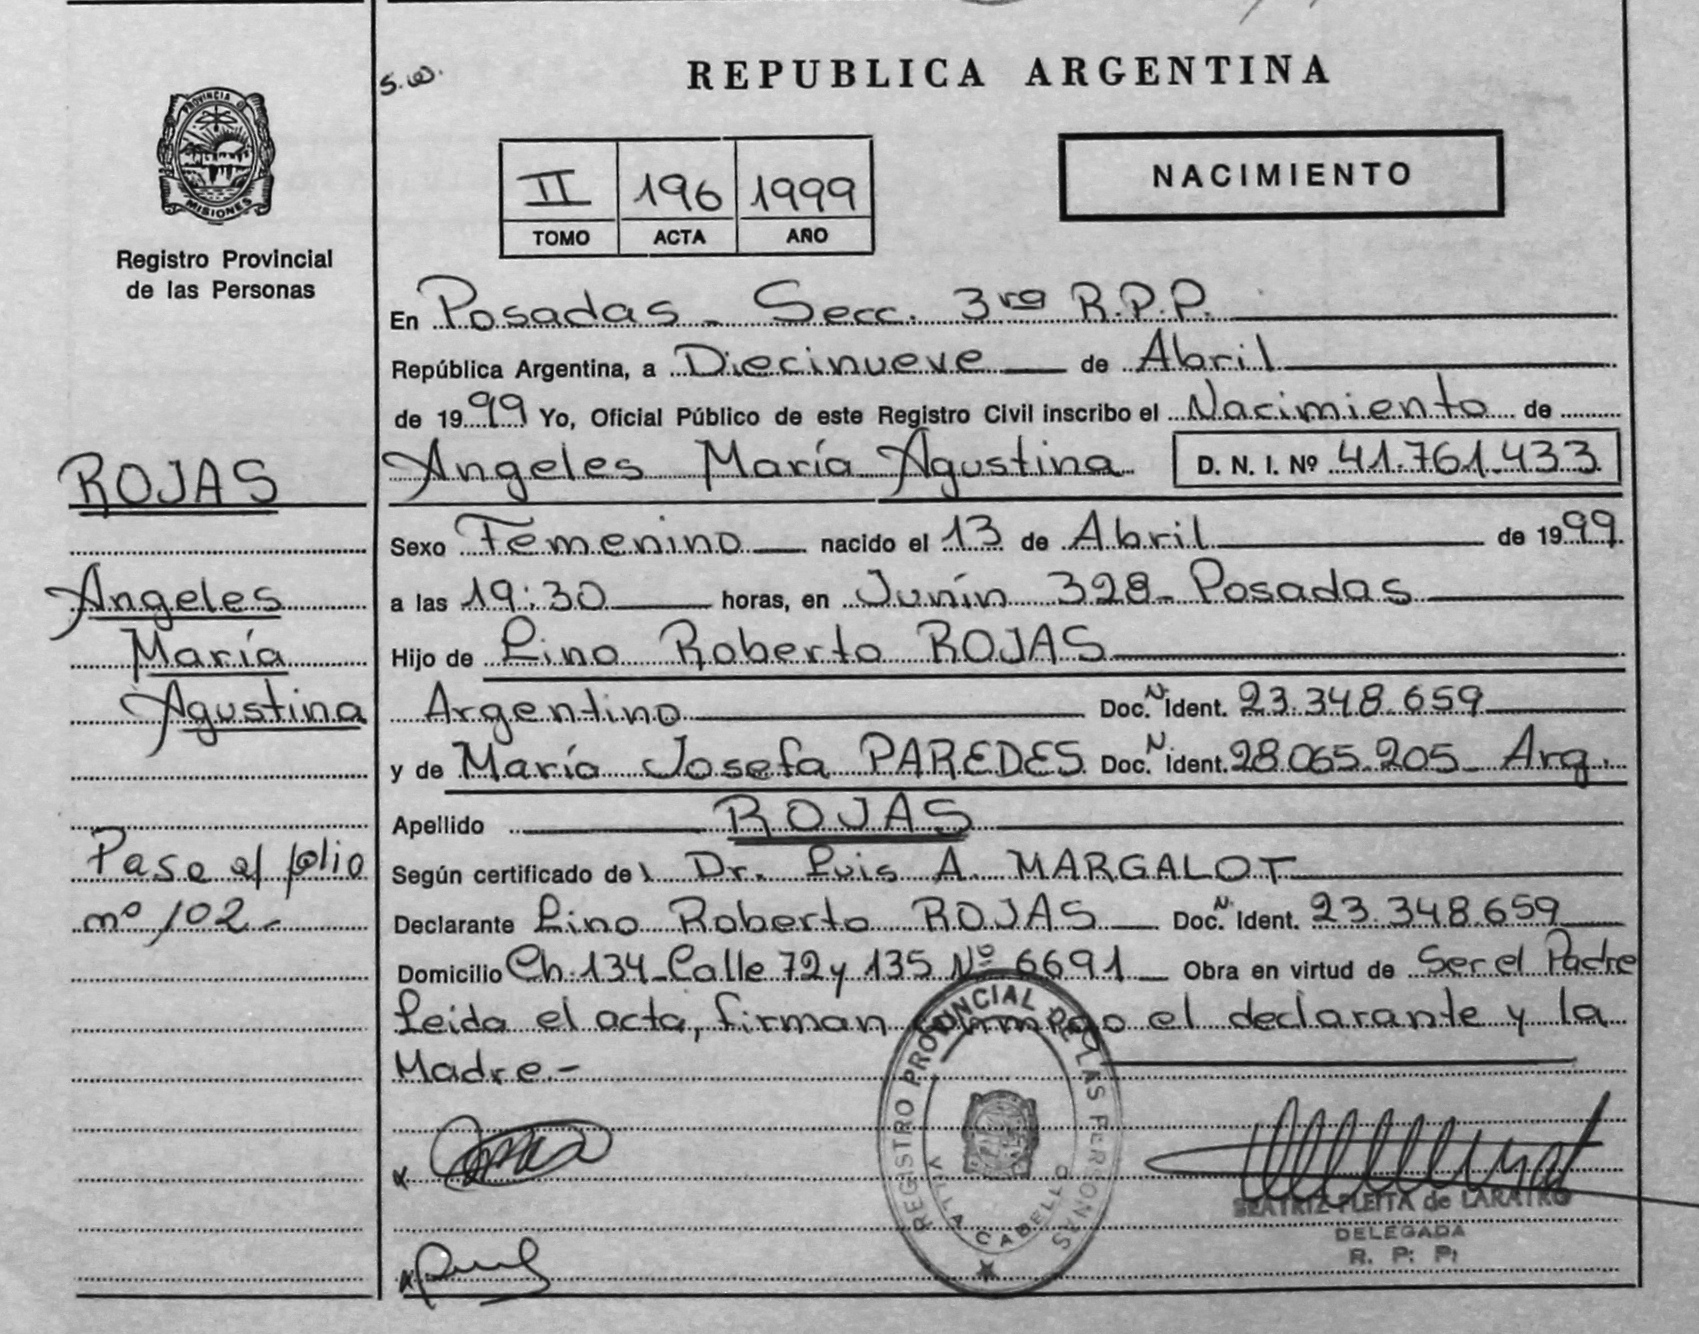 S.W.
REPUBLICA ARGENTINA
PROVINCIA D
MISIONES
Registro Provincial
de las Personas
II 196 1999
TOMO ACTA AÑO
NACIMIENTO
En Posadas - Secc. 3ra R.P.P.
República Argentina, a Diecinueve de Abril
de 1999 Yo, Oficial Público de este Registro Civil inscribo el Nacimiento de
Angeles María Agustina D. N. I. Nº 41.761.433
Sexo Femenino nacido el 13 de Abril de 1999.
a las 19:30 horas, en Junín 328 - Posadas
Hijo de Lino Roberto ROJAS
Argentino Doc. N. Ident. 23.348.659
y de María Josefa PAREDES Doc. N. Ident. 28.065.205 - Arg.
Apellido ROJAS
Según certificado del Dr. Luis A. MARGALOT
Declarante Lino Roberto ROJAS Doc. N. Ident. 23.348.659
Domicilio Ch. 134 - Calle 72 y 135 Nº 6691 Obra en virtud de Ser el Padre
Leida el acta, firman conmigo el declarante y la
Madre.-
ROJAS
Angeles
María
Agustina
Pase al folio
nº 102.-
REGISTRO PROVINCIAL DE LAS PERSONAS
VILLA CABELLO
BEATRIZ PLEITA de LARATRO
DELEGADA
R. P. P.